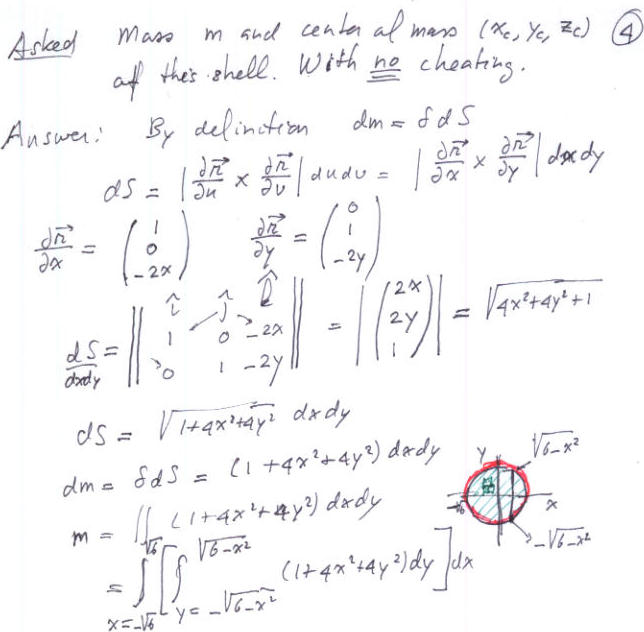 Asked Mass m and center of mass (x_c, y_c, z_c) ④
of this shell. With no cheating.
Answer: By definition dm = δ dS
dS = |∂r⃗/∂u × ∂r⃗/∂v| du dv = |∂r⃗/∂x × ∂r⃗/∂y| dx dy
∂r⃗/∂x = (1 0 -2x) ∂r⃗/∂y = (0 1 -2y)
dS/dxdy = || î ĵ k̂ 1 0 -2x 0 1 -2y || = |(2x 2y 1)| = √(4x²+4y²+1)
dS = √(1+4x²+4y²) dx dy
dm = δ dS = (1+4x²+4y²) dx dy
m = ∬ (1+4x²+4y²) dx dy
= ∫_{x=-√6}^{√6} [∫_{y=-√(6-x²)}^{√(6-x²)} (1+4x²+4y²) dy] dx
y √(6-x²)
x
-√(6-x²)